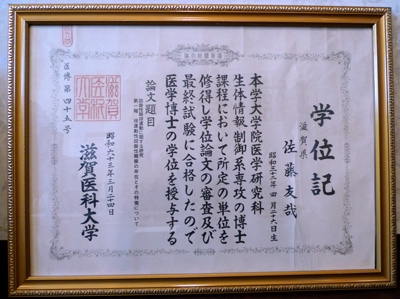 学位記
滋賀県
佐藤友哉
昭和三十三年四月二十六日生
本学大学院医学研究科
生体情報制御系専攻の博士
課程において所定の単位を
修得し学位論文の審査及び
最終試験に合格したので
医学博士の学位を授与する
論文題目
昭和六十三年三月二十四日
滋賀医科大学
医博第四十五号